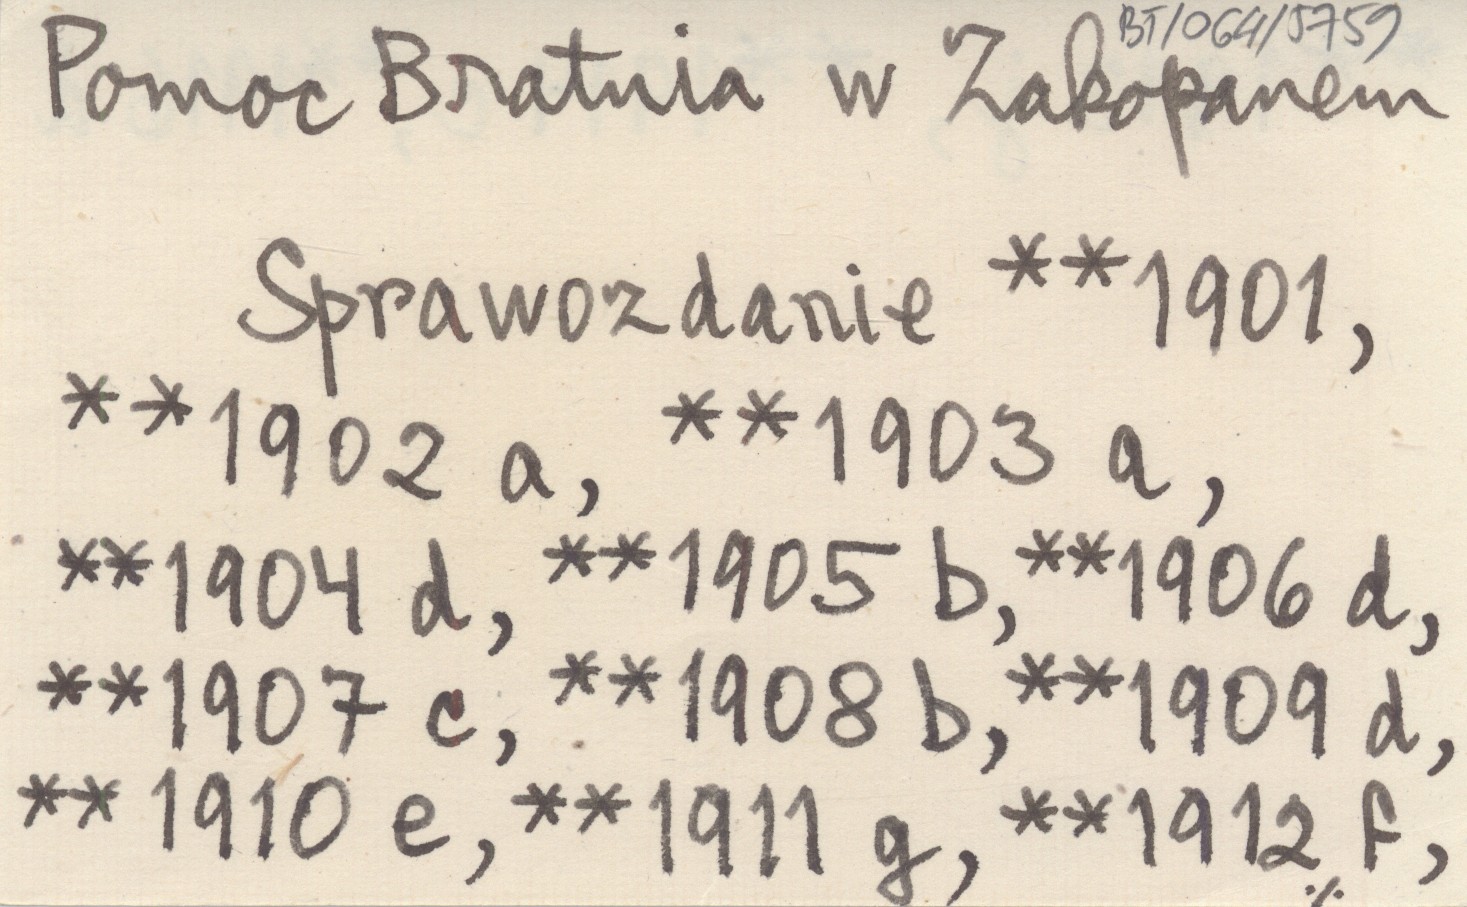 BT/064/5759
Pomoc Bratnia w Zakopanem
Sprawozdanie **1901,
**1902 a, **1903 a,
**1904 d, **1905 b, **1906 d,
**1907 c, **1908 b, **1909 d,
**1910 e, **1911 g, **1912 f,
./.